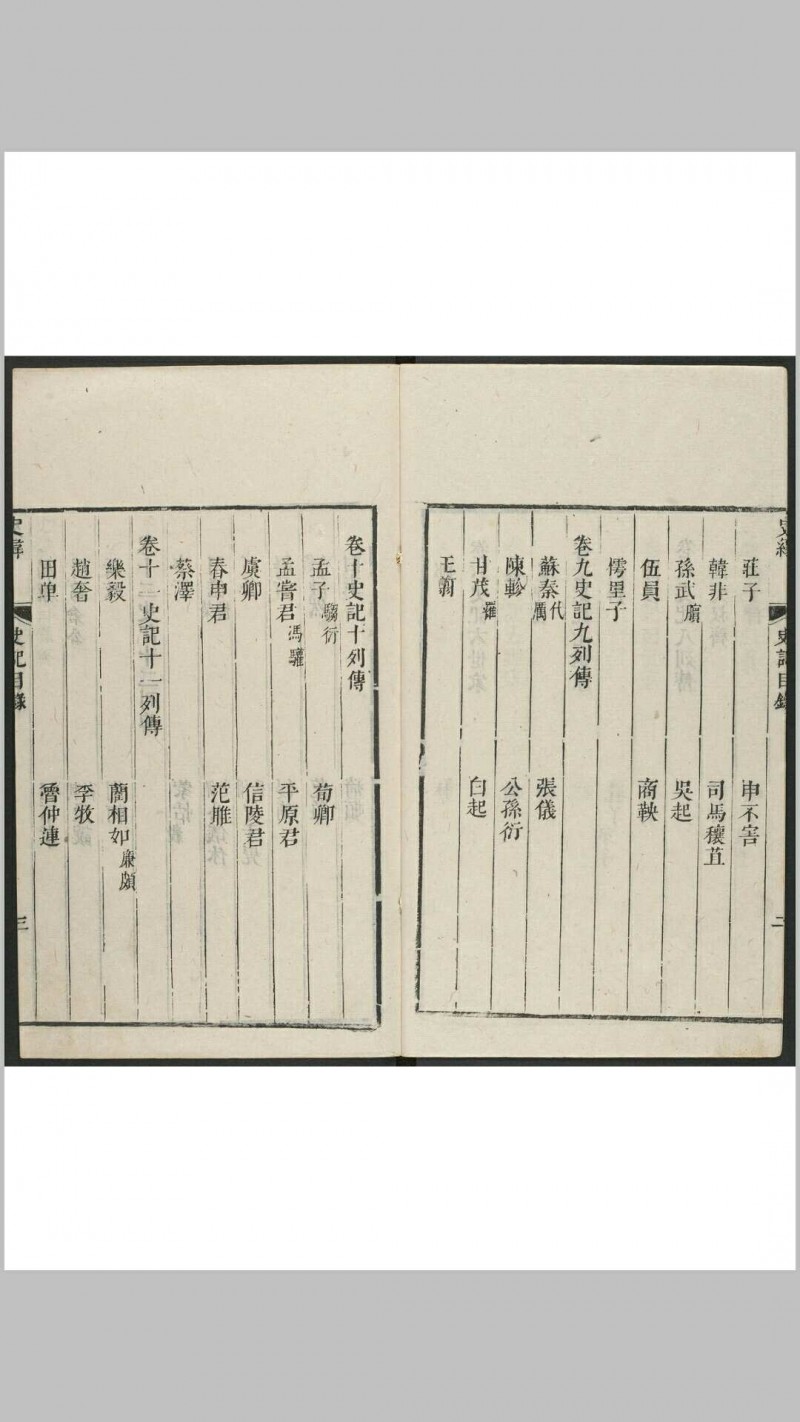 史緯 史記目錄 二
莊子 申不害
韓非 司馬穰苴
孫武 臏 吳起
伍員 商鞅
樗里子
卷九史記九列傳
蘇秦 代 厲 張儀
陳軫 公孫衍
甘茂 羅 白起
王翦
卷十史記十列傳
孟子 騶衍 荀卿
孟嘗君 馮驩 平原君
虞卿 信陵君
春申君 范雎
蔡澤
卷十一史記十一列傳
樂毅 藺相如 廉頗
趙奢 李牧
田單 魯仲連
史緯 史記目錄 三